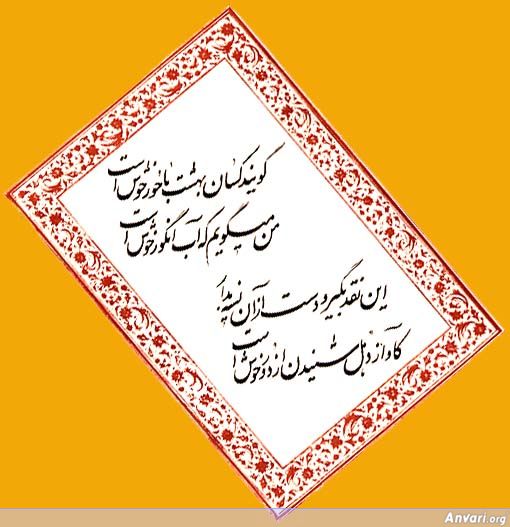 گویند کسان بهشت با حور خوش است
من میگویم که آب انگور خوش است
این نقد بگیر و دست از آن نسیه بدار
کاواز دهل شنیدن از دور خوش است
Anvari.org